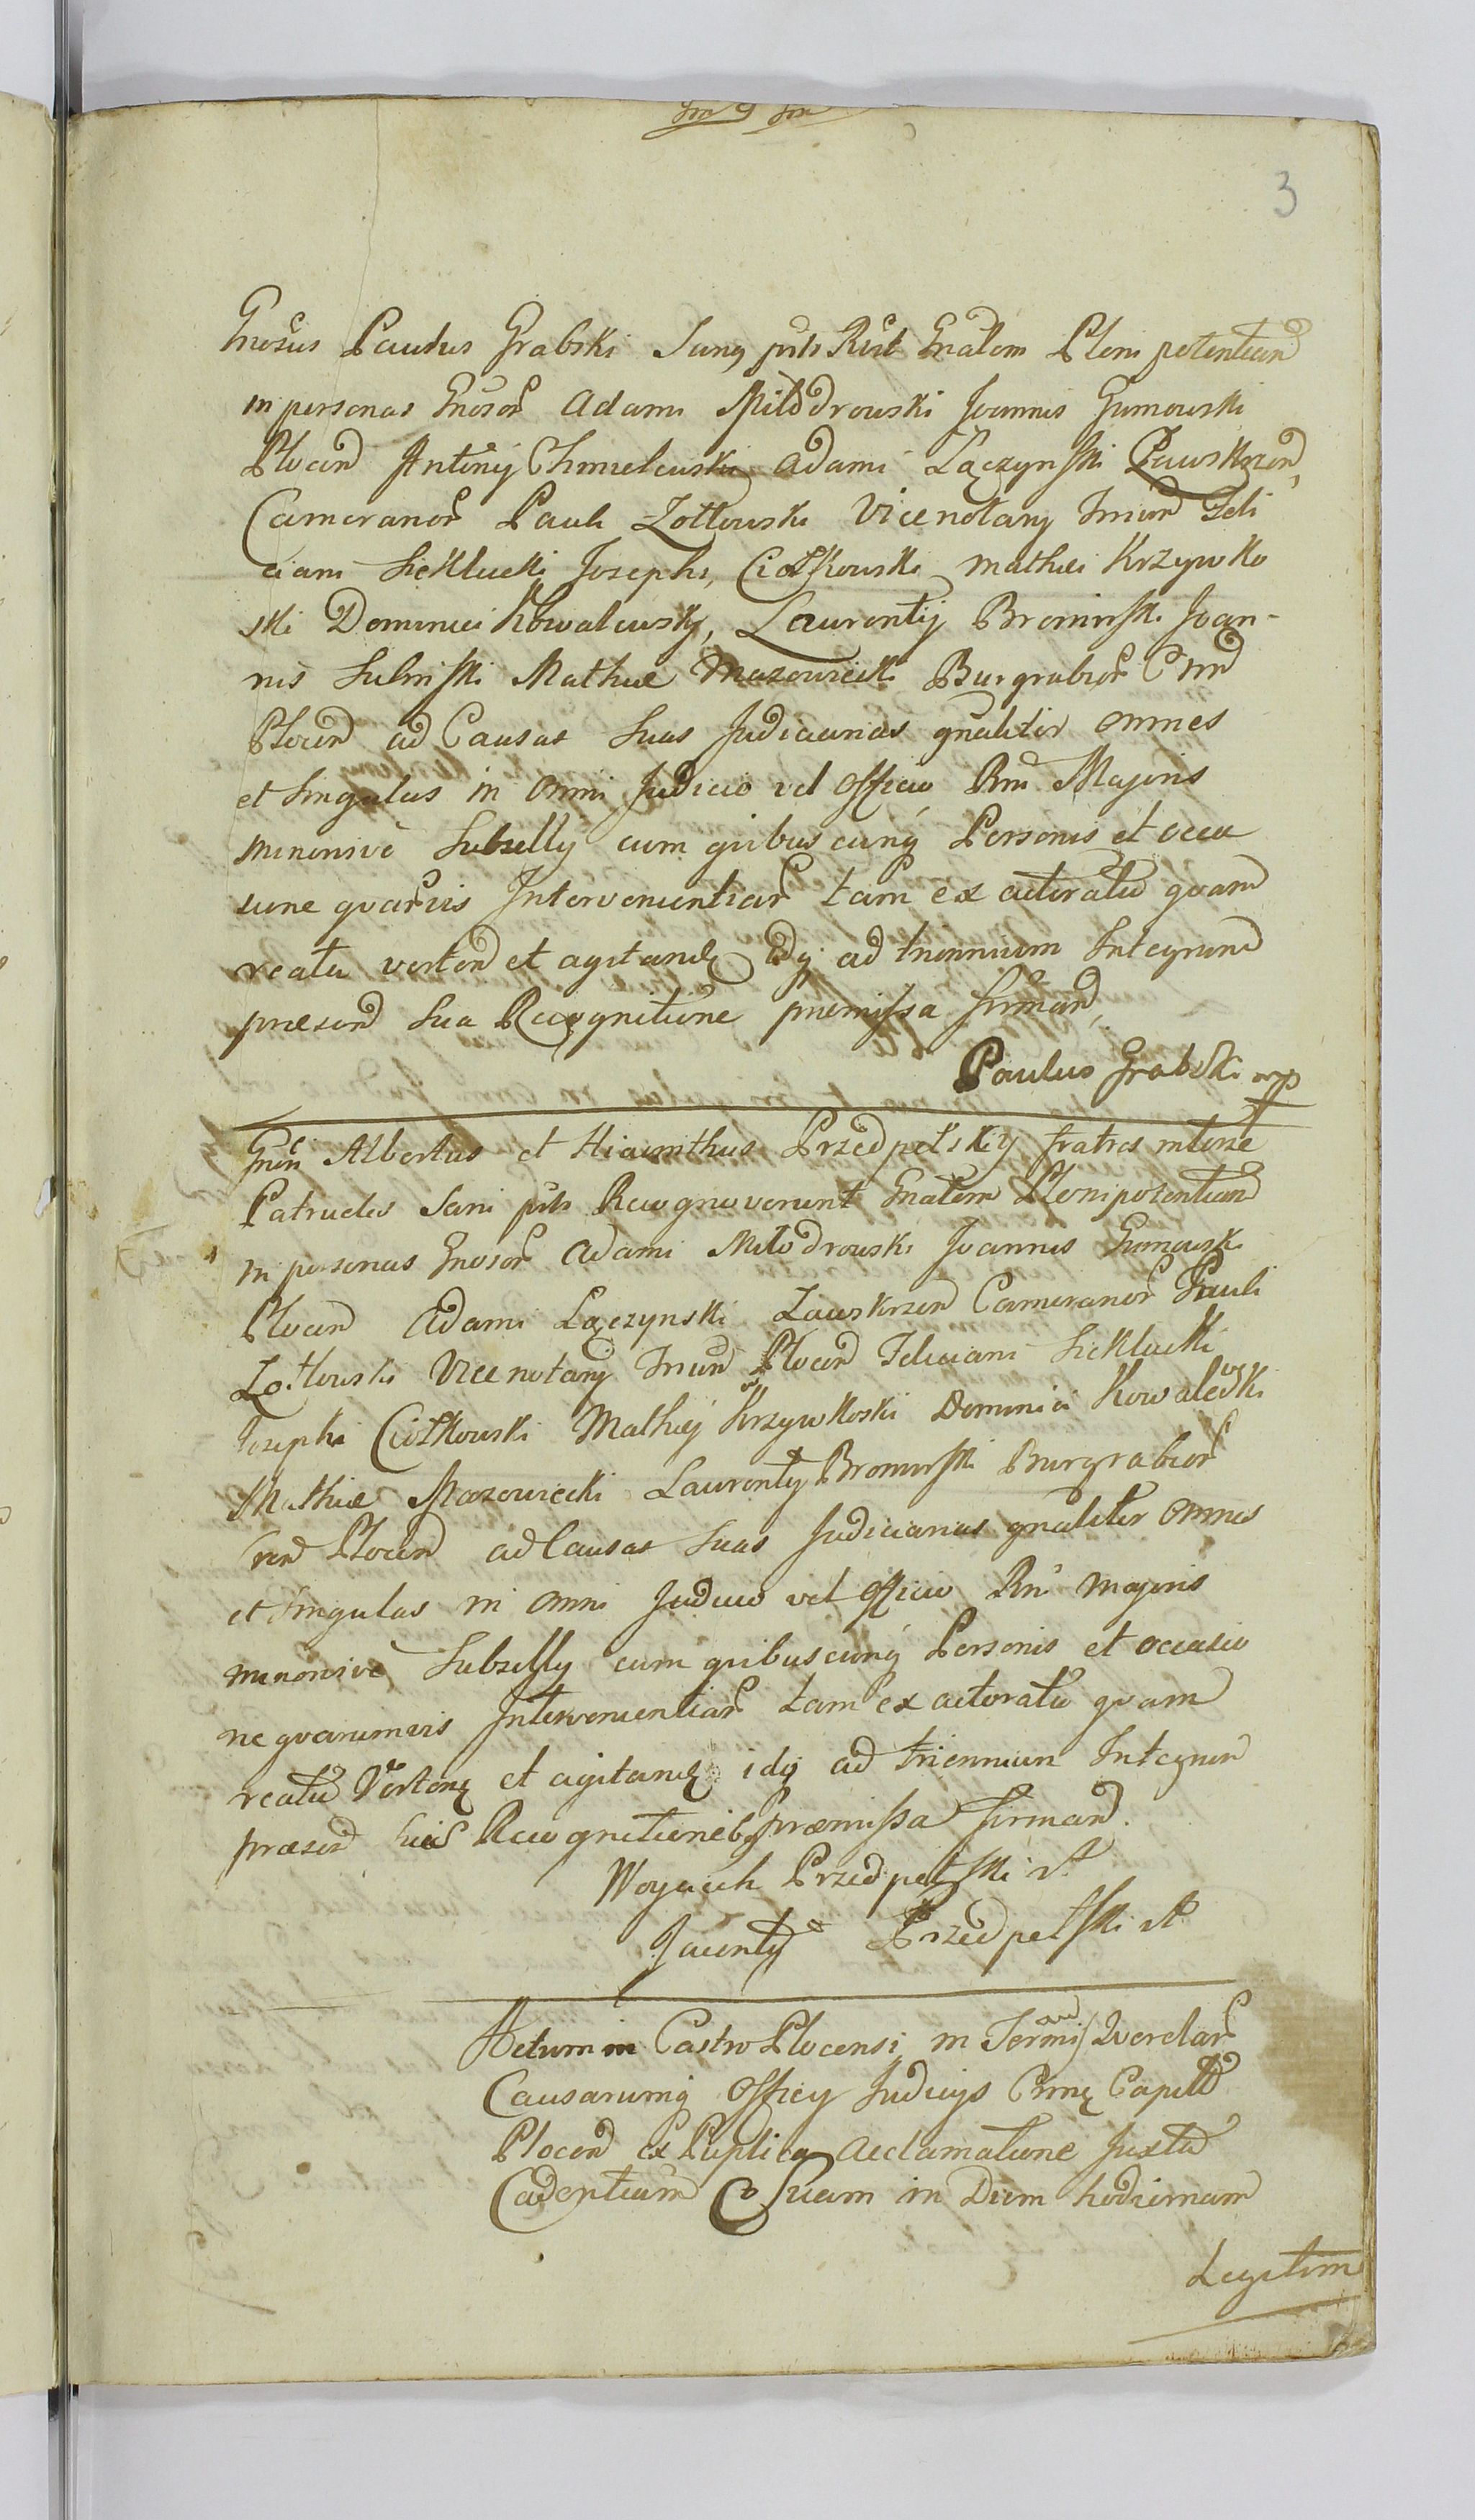 3
Gnosus Paulus Grabski Sanq pńs Rcit Gnalem Plenipotentiam
in personas Gnosor Adami Miłodrowski Joannis Gumowski
Plocen Antonij Chmielewski Adami Łączynski Zawskrzen,
Cameranor Pauli Zołtowski Vicenotarij Trium Feli
ciani Sieklucki Josephi, Ciołkowski Mathiei Krzywko
ski Dominici Kowalewskij, Laurentij Bromirski Joan-
nis Sulinski Mathiæ Mazowiecki Burgrabior Crm
Plocen ad Causas Suas Judiciarias gnaliter omnes
et Singulas in omni Judicio vel Officio Rni Majoris
minorisve Subsellij cum quibuscunq Personis et occa
sione quarvis Intervenientiar tam ex actoratu quam
reatu verten et agitand idq ad triennium Integrum
præsen Sua Recognitione præmissa firmand,
Paulus Grabski mp
Gnsi Albertus et Hiacinthus Przedpełskij fratres intense
Patrueles Sani pńs Recognoverunt Gnalem Plenipotentiam
in personas Gnosor Adami Miłodrowski Joannis Gumowski
Plocen Adami Łączynski Zawskrzen Cameranor Pauli
Zołtowski Vicenotarij Trium Plocen Feliciani Sieklucki
Josephi Ciołkowski Mathiej Krzywkoski Dominici Kowalewski
Mathiæ Mazowiecki Laurentij Bromirski Burgrabior
Cren Plocen ad Causas Suas Judiciarias gnaliter omnes
et Singulas in omni Judicio vel Officio Rni Majoris
minorisve Subsellij cum quibuscunq Personis et occasio
ne quarumvis Intervenientiar tam ex actoratu quam
reatu Verten et agitand idq ad triennium Integrum
præsen suis Recognitionib præmissa firmand.
Woyciech Przedpełski
Jacenty Przedpełski
Actum in Castro Plocensi in Termi Querelar
Causarumq Officij Judicijs Crmq Capitl
Plocen ex Puplica acclamatione Juxta
Cadentiam Suam in Diem hodiernam
Legitime